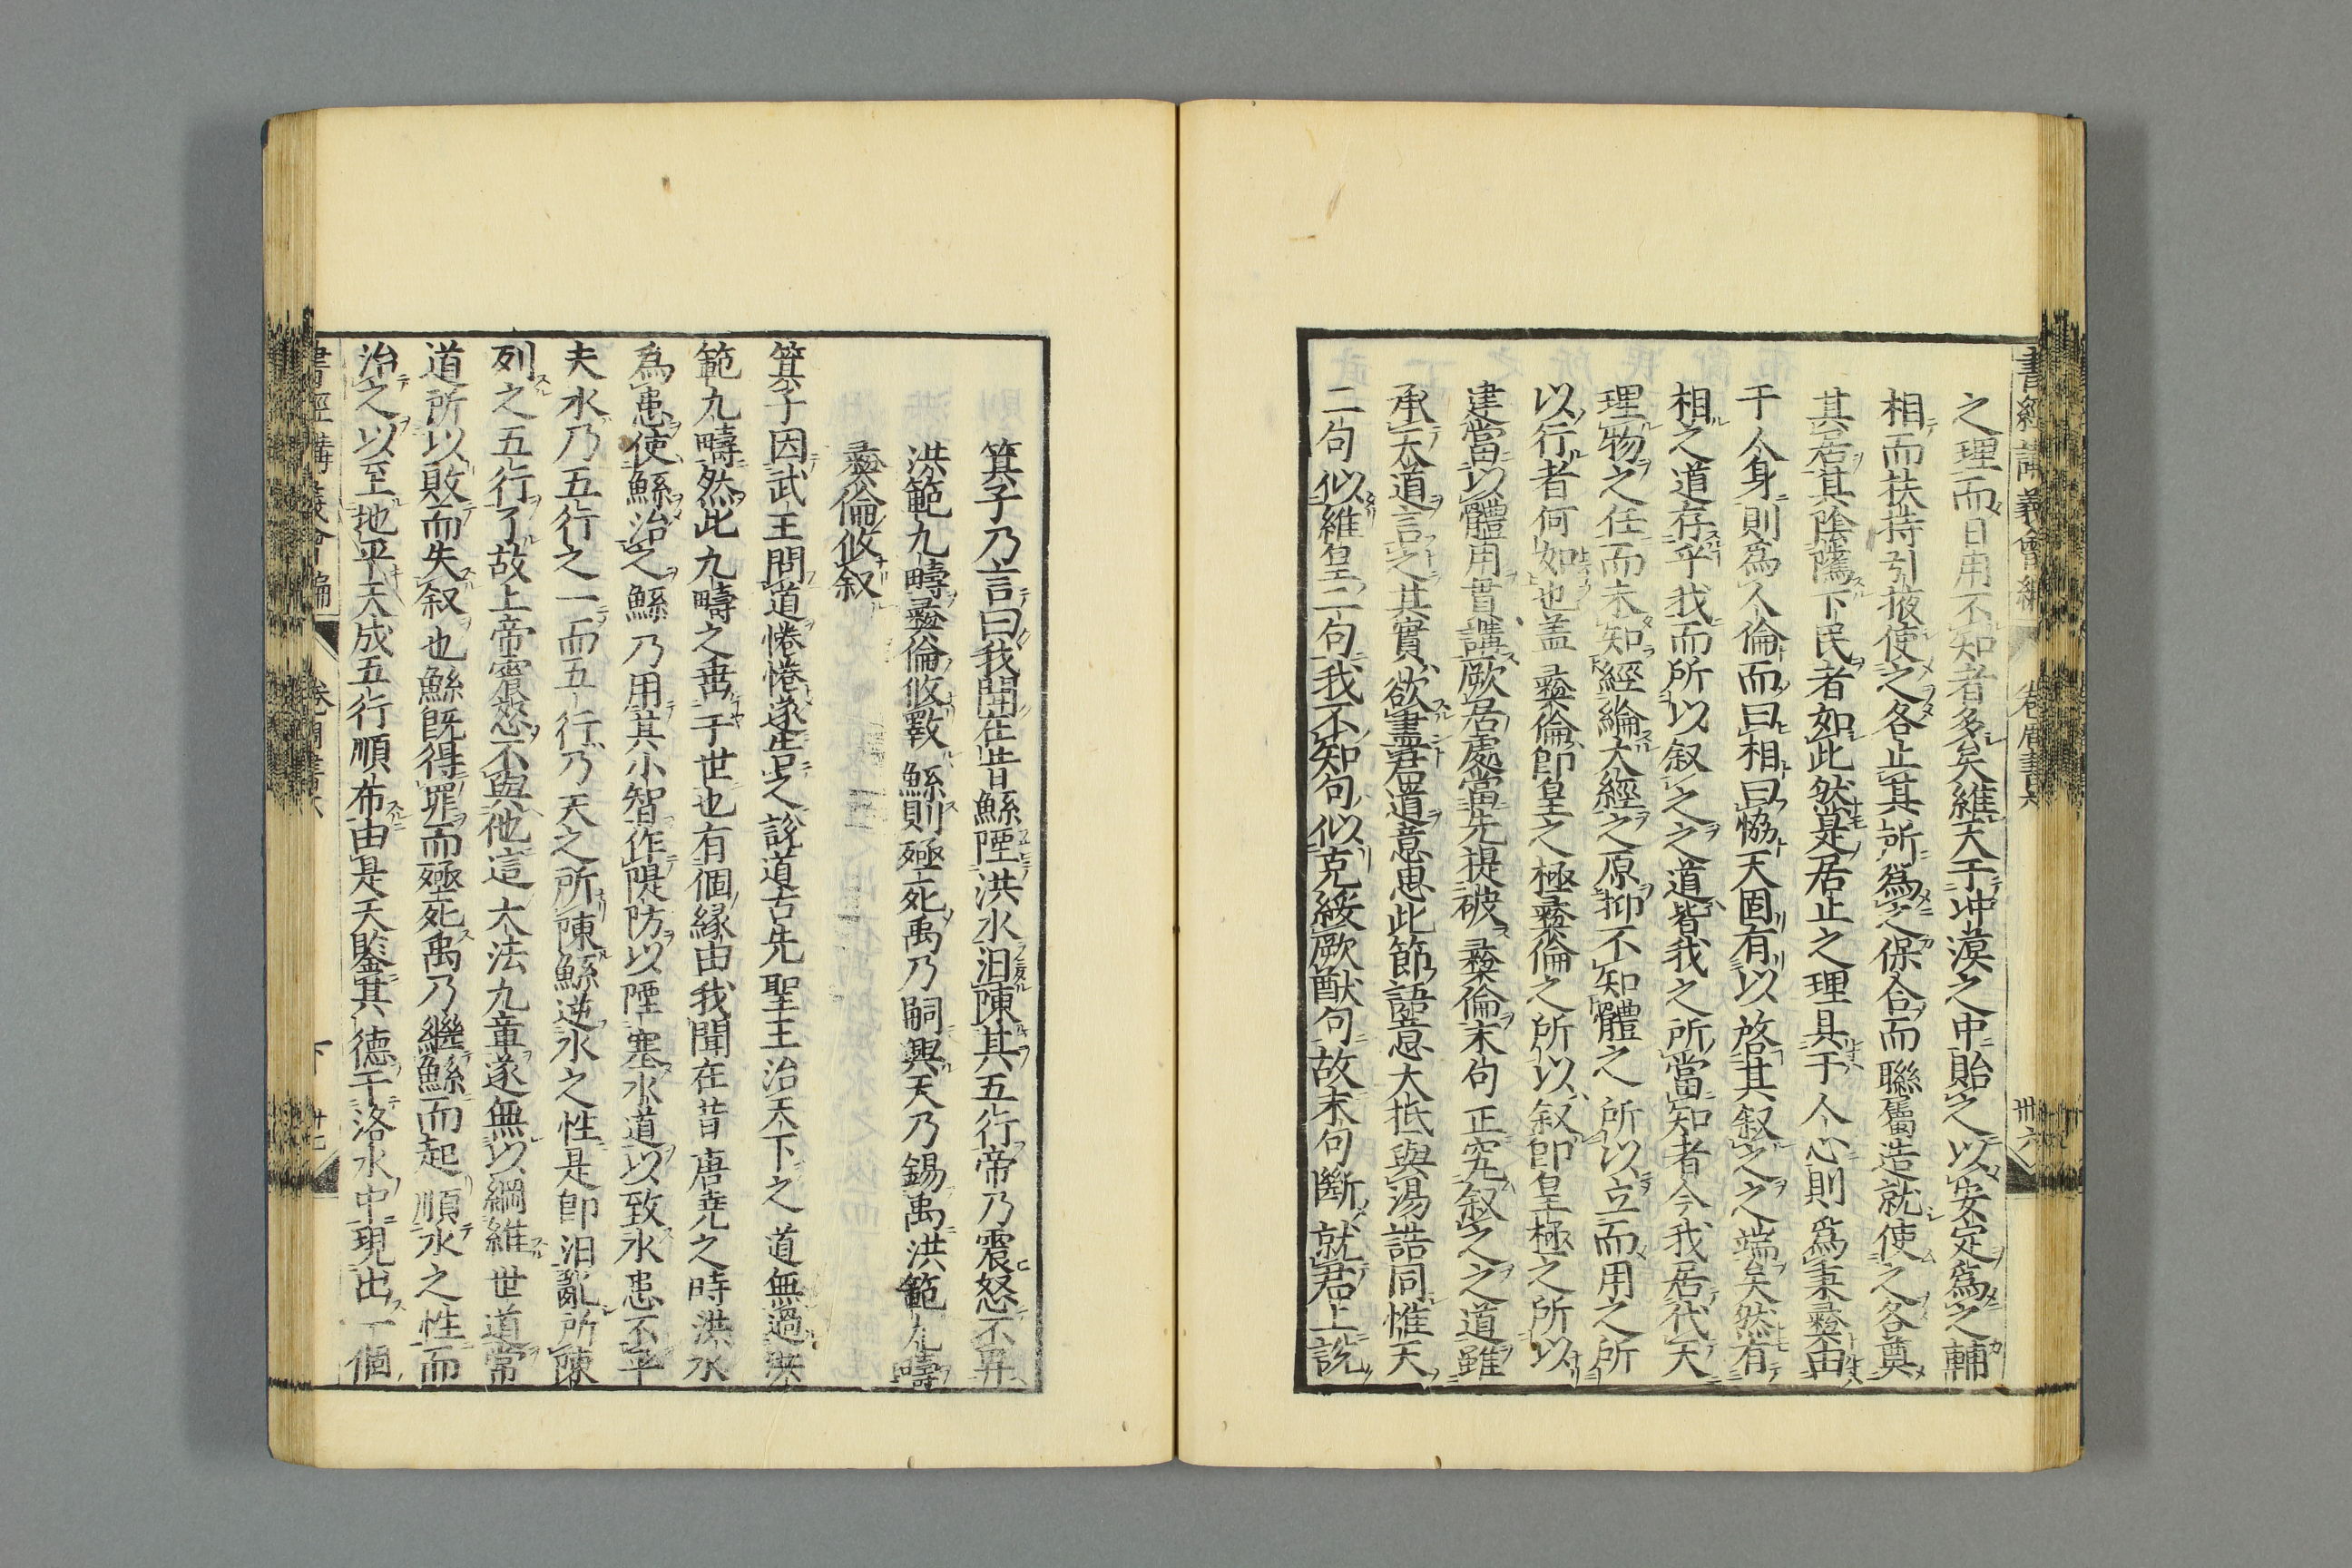 書經講義會編 卷周書六 卅六
之理而日用不知者多矣維天于冲漠之中貽之以安定爲之輔
相而扶持引掖使之各止其所爲之保合而聯屬造就使之各奠
其居其陰隲下民者如此然是居止之理具于人心則爲秉彝由
于人身則爲人倫而曰相曰恊天固有以啓其叙之之端矣然有
相之道存乎我而所以叙之之道皆我之所當知者今我居代天
理物之任而未知經綸大經之原抑不知體之所以立而用之所
以行者何如也盖彝倫即皇之極彝倫之所以叙即皇極之所以
建當以體用貫講厥居處當先提破彝倫末句正究叙之之道雖
承天道言之其實欲盡君道意思此節語意大抵與湯誥同惟天
二句似維皇二句我不知句似克綏厥猷句故末句斷就君上說
箕子乃言曰我聞在昔鯀陻洪水汩陳其五行帝乃震怒不畀
洪範九疇彝倫攸斁鯀則殛死禹乃嗣興天乃錫禹洪範九疇
彝倫攸叙
箕子因武王問道惓惓遂告之說道古先聖王治天下之道無過洪
範九疇然此九疇之埀于世也有個縁由我聞在昔唐堯之時洪水
爲患使鯀治之鯀乃用其小智作隄防以陻塞水道以致水患不平
夫水乃五行之一而五行乃天之所陳鯀逆水之性是即汩亂所陳
列之五行了故上帝震怒不與他這大法九章遂無以綱維世道常
道所以敗而失叙也鯀既得罪而殛死禹乃繼鯀而起順水之性而
治之以至地平天成五行順布由是天鑒其德于洛水中現出一個
書經講義會編 卷周書六 卅七